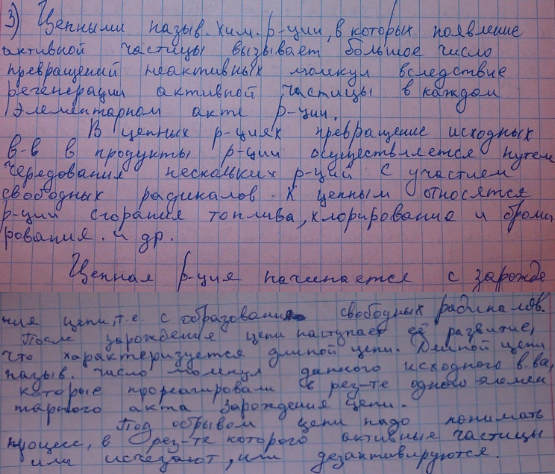 3) Цепными назыв. хим. р-ции, в которых появление
активной частицы вызывает большое число
превращений неактивных молекул вследствие
регенерации активной частицы в каждом
элементарном акте р-ции.
В цепных р-циях превращение исходных
в-в в продукты р-ции осуществляется путем
чередования нескольких р-ций с участием
свободных радикалов. К цепным относятся
р-ции сгорания топлива, хлорирования и броми
рования. и др.
Цепная р-ция начинается с зарожде
ния цепи, т.е. с образования свободных радикалов.
После зарождения цепи наступает её развитие,
что характеризуется длиной цепи. Длиной цепи
назыв. число молекул данного исходного в-ва,
которые прореагировали в рез-те одного элемен
тарного акта зарождения цепи.
Под обрывом цепи надо понимать
процесс, в рез-те которого активные частицы
или исчезают, или дезактивируются.